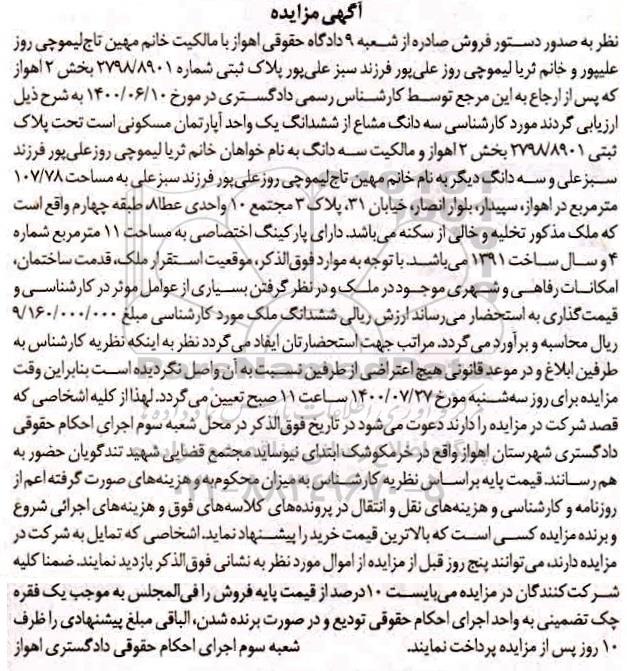 آگهی مزایده
نظر به صدور دستور فروش صادره از شعبه ۹ دادگاه حقوقی اهواز با مالکیت خانم مهین تاج لیموچی روز
علیپور و خانم ثریا لیموچی روز علی‌پور فرزند سبز علی‌پور پلاک ثبتی شماره ۲۷۹۸/۸۹۰۱ بخش ۲ اهواز
که پس از ارجاع به این مرجع توسط کارشناس رسمی دادگستری در مورخ ۱۴۰۰/۰۶/۱۰ به شرح ذیل
ارزیابی گردند مورد کارشناسی سه دانگ مشاع از ششدانگ یک واحد آپارتمان مسکونی است تحت پلاک
ثبتی ۲۷۹۸/۸۹۰۱ بخش ۲ اهواز و مالکیت سه دانگ به نام خواهان خانم ثریا لیموچی روز علی‌پور فرزند
سبز علی و سه دانگ دیگر به نام خانم مهین تاج لیموچی روز علی‌پور فرزند سبز علی به مساحت ۱۰۷/۷۸
متر مربع در اهواز، سپیدار، بلوار انصار، خیابان ۳۱، پلاک ۳ مجتمع ۱۰ واحدی عطا۸، طبقه چهارم واقع است
که ملک مذکور تخلیه و خالی از سکنه می‌باشد. دارای پارکینگ اختصاصی به مساحت ۱۱ متر مربع شماره
۴ و سال ساخت ۱۳۹۱ می‌باشد. با توجه به موارد فوق‌الذکر، موقعیت استقرار ملک، قدمت ساختمان،
امکانات رفاهی و شهری موجود در ملک و در نظر گرفتن بسیاری از عوامل موثر در کارشناسی و
قیمت‌گذاری به استحضار می‌رساند ارزش ریالی ششدانگ ملک مورد کارشناسی مبلغ ۹/۱۶۰/۰۰۰/۰۰۰
ریال محاسبه و برآورد می‌گردد. مراتب جهت استحضارتان ایفاد می‌گردد نظر به اینکه نظریه کارشناس به
طرفین ابلاغ و در موعد قانونی هیچ اعتراضی از طرفین نسبت به آن واصل نگردیده است بنابراین وقت
مزایده برای روز سه‌شنبه مورخ ۱۴۰۰/۰۷/۲۷ ساعت ۱۱ صبح تعیین می‌گردد. لهذا از کلیه اشخاصی که
قصد شرکت در مزایده را دارند دعوت می‌شود در تاریخ فوق‌الذکر در محل شعبه سوم اجرای احکام حقوقی
دادگستری شهرستان اهواز واقع در خرمکوشک ابتدای نیوساید مجتمع قضایی شهید تندگویان حضور به
هم رسانند. قیمت پایه بر اساس نظریه کارشناس به میزان محکوم‌به و هزینه‌های صورت گرفته اعم از
روزنامه و کارشناسی و هزینه‌های نقل و انتقال در پرونده‌های کلاسه‌های فوق و هزینه‌های اجرائی شروع
و برنده مزایده کسی است که بالاترین قیمت خرید را پیشنهاد نماید. اشخاصی که تمایل به شرکت در
مزایده دارند، می‌توانند پنج روز قبل از مزایده از اموال مورد نظر به نشانی فوق‌الذکر بازدید نمایند. ضمنا کلیه
شرکت‌کنندگان در مزایده می‌بایست ۱۰درصد از قیمت پایه فروش را فی‌المجلس به موجب یک فقره
چک تضمینی به واحد اجرای احکام حقوقی تودیع و در صورت برنده شدن، الباقی مبلغ پیشنهادی را ظرف
۱۰ روز پس از مزایده پرداخت نمایند. شعبه سوم اجرای احکام حقوقی دادگستری اهواز